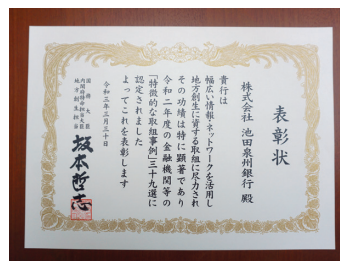 表彰状
株式会社 池田泉州銀行 殿
貴行は
幅広い情報ネットワークを活用し
地方創生に資する取組に尽力され
その功績は特に顕著であり
令和二年度の金融機関等の
「特徴的な取組事例」三十九選に
認定されました
よってこれを表彰します
令和三年三月三十日
国務大臣
内閣府特命担当大臣
地方創生担当
坂本哲志